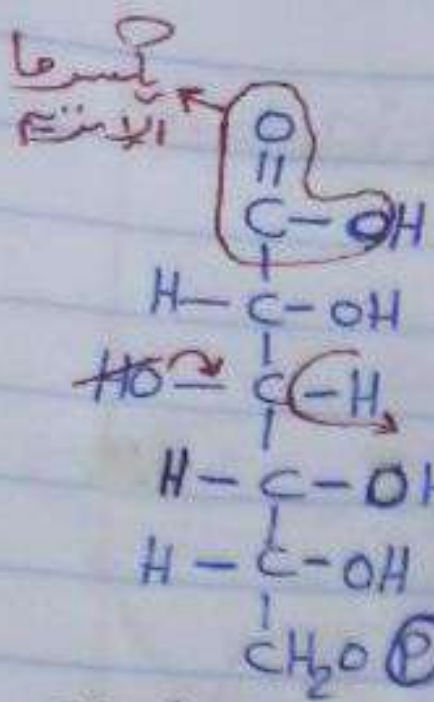 يكسرها
الإنزيم
O
||
C – OH
H – C – OH
HO – C – H
H – C – OH
H – C – OH
CH₂O P